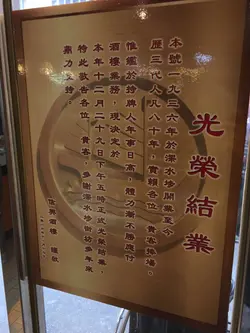 光榮結業
本號一九三六年於深水埗開業至今
歷三代人凡八十年，實賴各位 貴客捧場。
惟鑑於持牌人年事日高，體力漸不勝應付
酒樓業務，現決定於
本年十二月二十九日下午五時正式光榮結業，
特此敬告各位 貴客，多謝深水埗街坊多年來
鼎力支持。
信興酒樓 謹啟